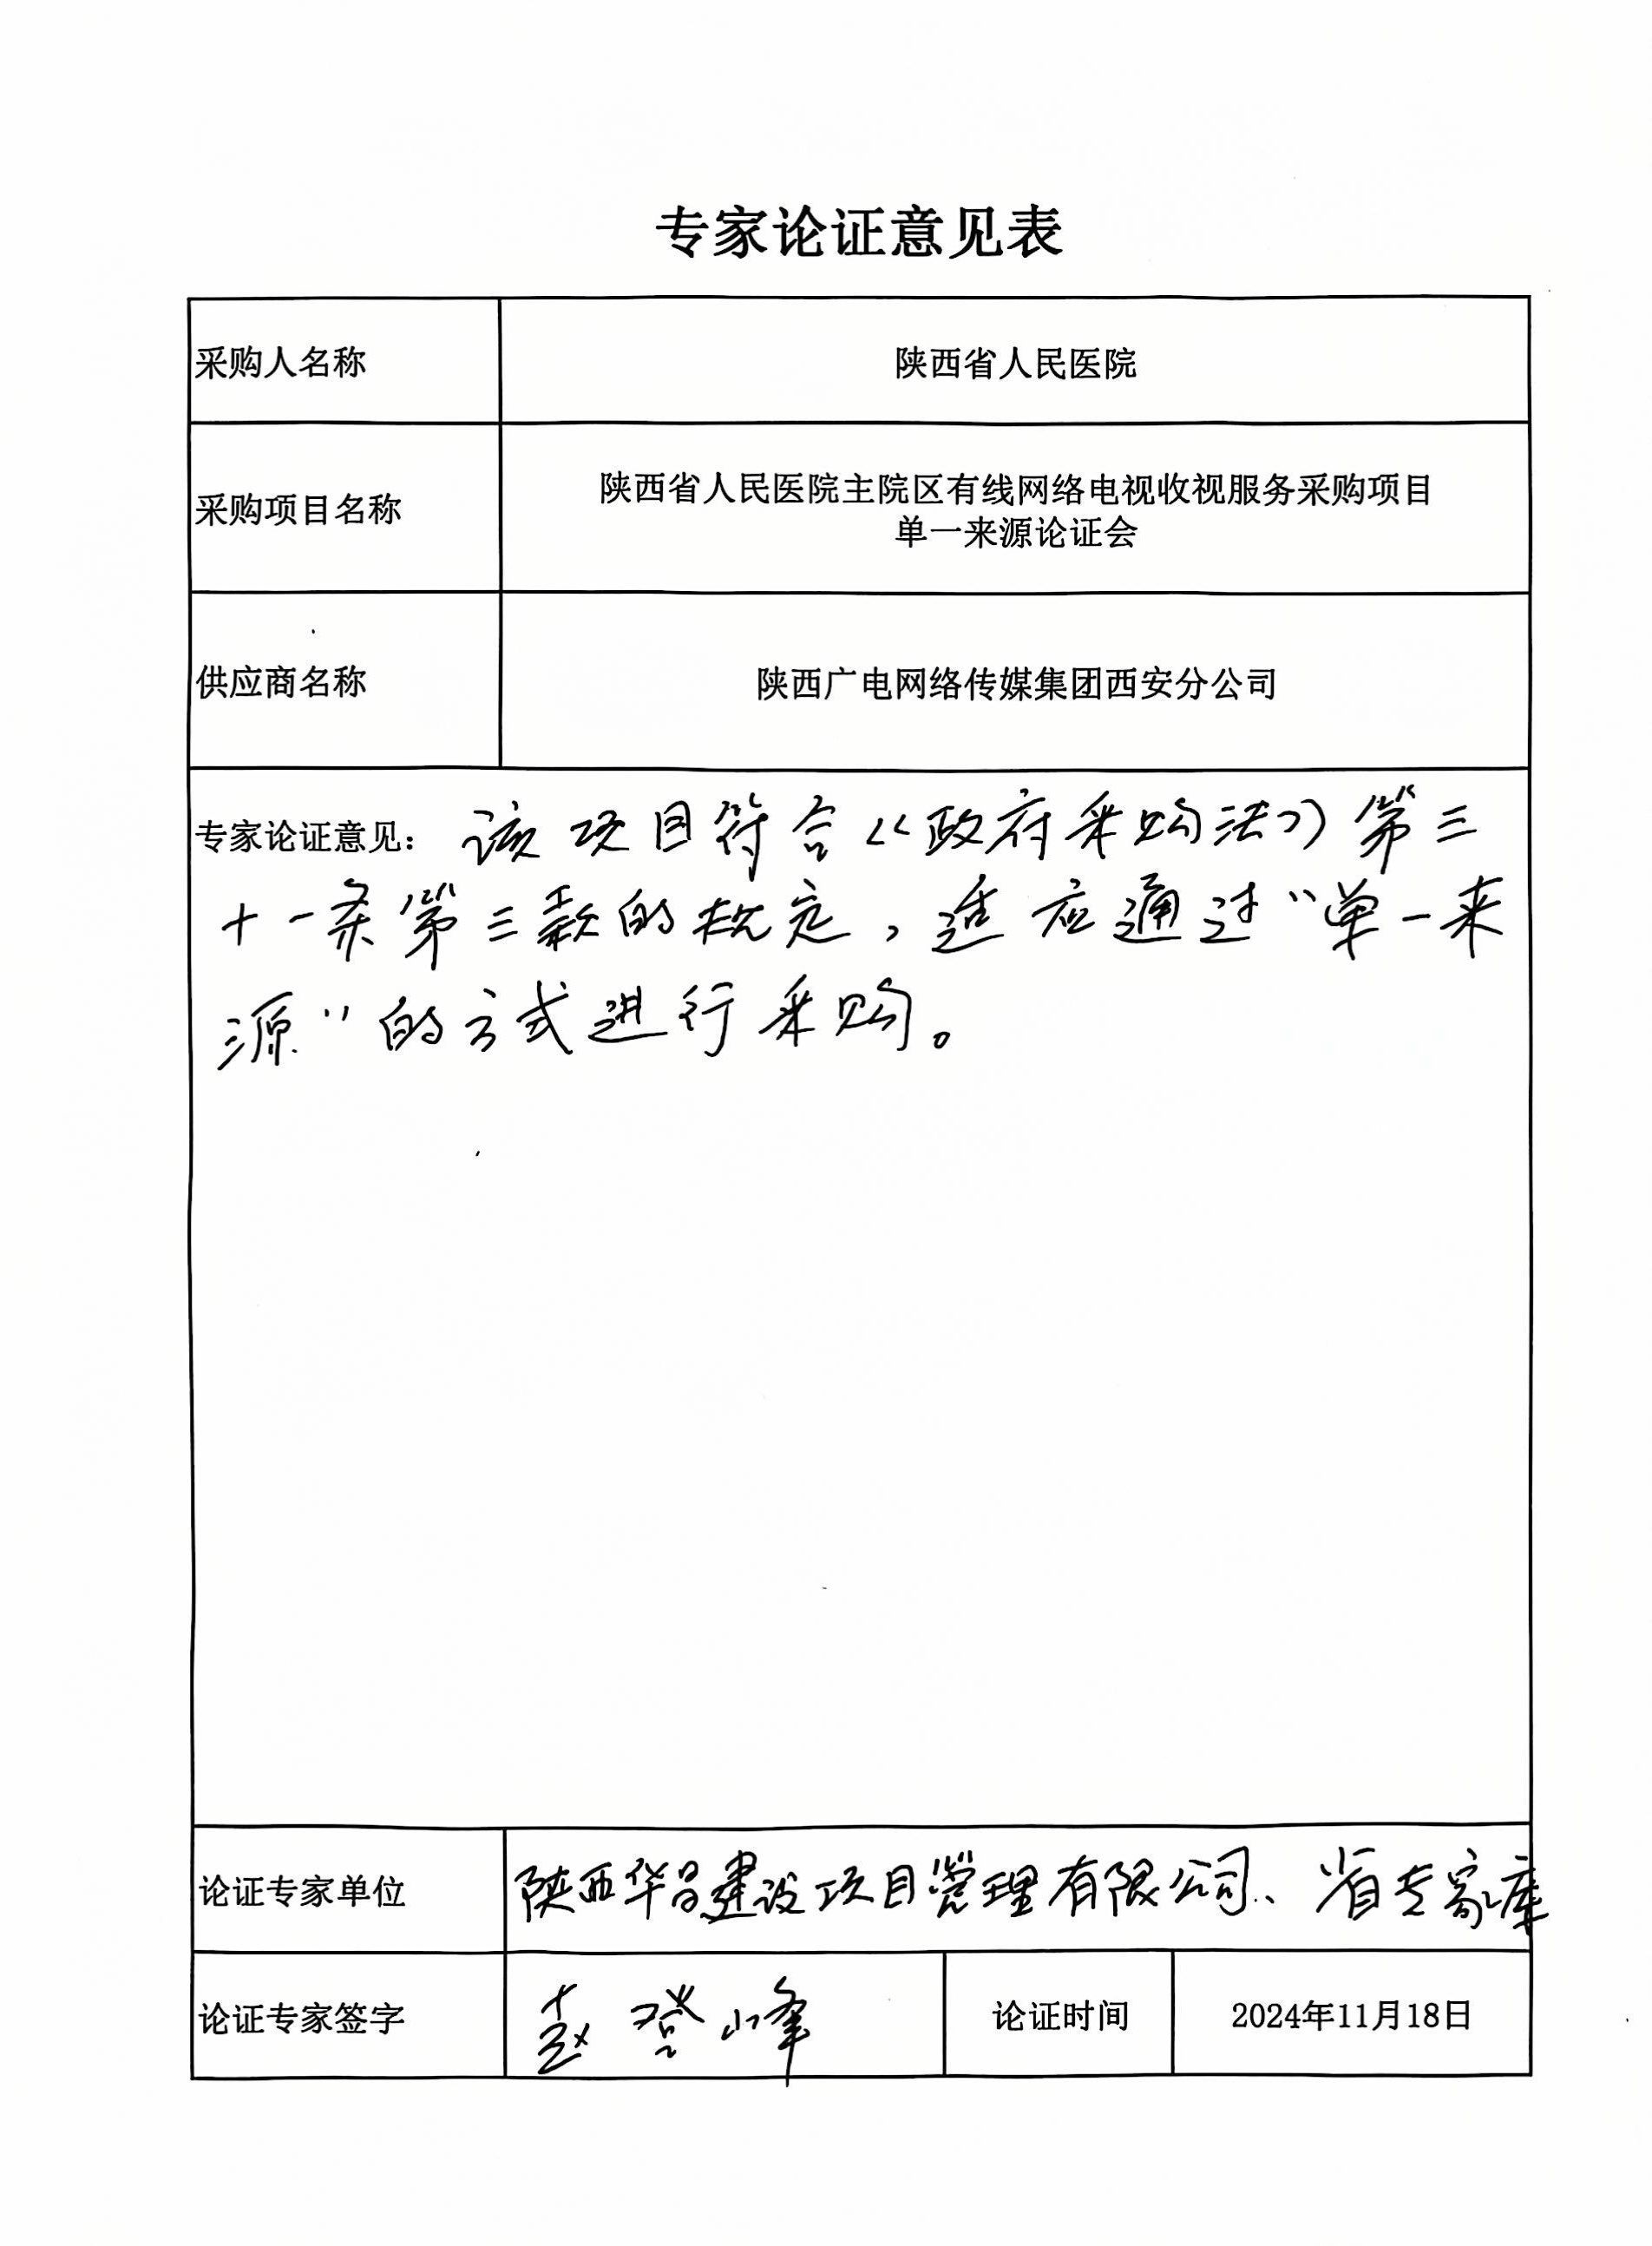 专家论证意见表
采购人名称
陕西省人民医院
采购项目名称
陕西省人民医院主院区有线网络电视收视服务采购项目
单一来源论证会
供应商名称
陕西广电网络传媒集团西安分公司
专家论证意见：该项目符合《政府采购法》第三
十一条第三款的规定，适应通过“单一来
源”的方式进行采购。
论证专家单位
陕西华昌建设项目管理有限公司、省专家库
论证专家签字
赵登峰
论证时间
2024年11月18日